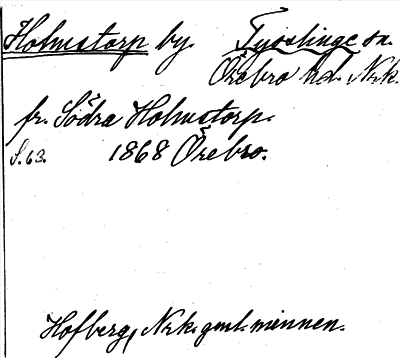 Holmstorp by. Tysslinge sn.
Örebro hd. Nrk.
fr. Södra Holmstorp.
S. 63. 1868 Örebro.
Hofberg, Nrks gml. minnen.